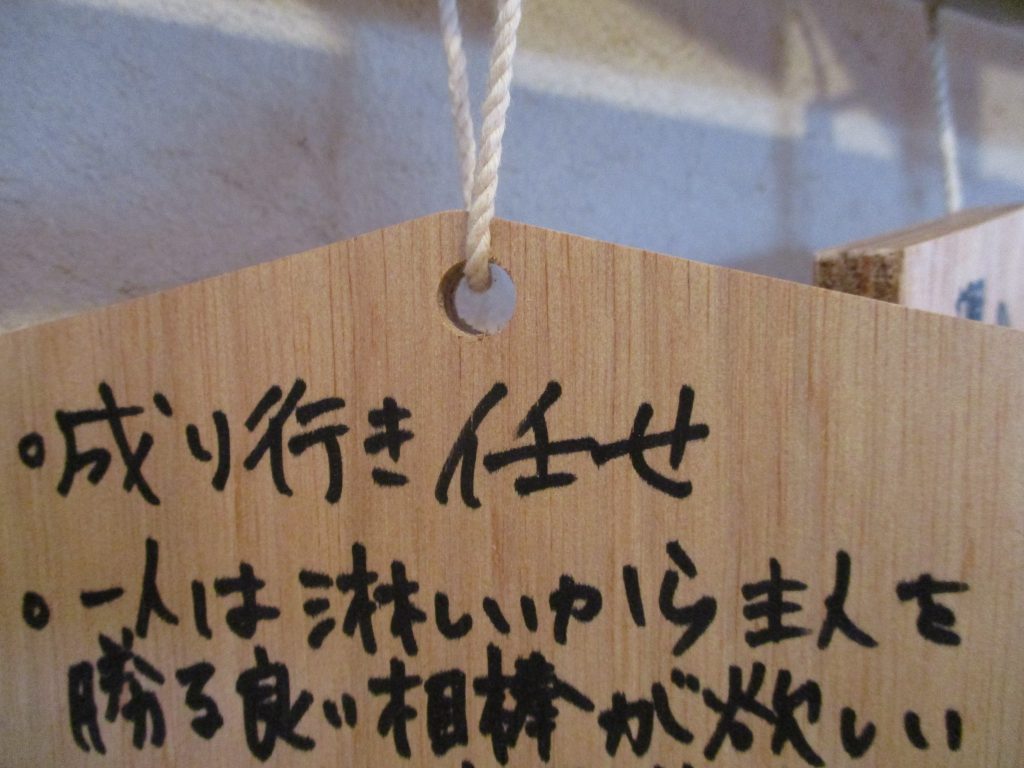 。成り行き任せ
。一人は淋しいから主人を
勝る良い相棒が欲しい